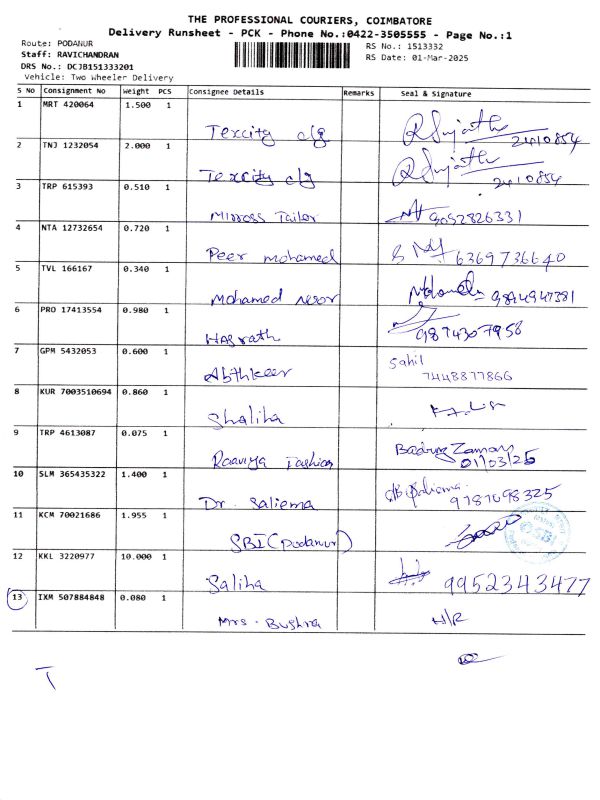 THE PROFESSIONAL COURIERS, COIMBATORE
Delivery Runsheet - PCK - Phone No.:0422-3505555 - Page No.:1
Route: PODANUR
RS No.: 1513332
Staff: RAVICHANDRAN
RS Date: 01-Mar-2025
DRS No.: DCJB151333201
Vehicle: Two Wheeler Delivery
S No Consignment No Weight PCS Consignee Details Remarks Seal & Signature
1 MRT 420064 1.500 1
Texcity clg 2410854
2 TNJ 1232054 2.000 1
Texcity clg 2410854
3 TRP 615393 0.510 1
Mirross Tailor 9052826331
4 NTA 12732654 0.720 1
Peer mohamed 6369736640
5 TVL 166167 0.340 1
Mohamed 9894947381
6 PRO 17413554 0.980 1
Hasrath 9874307958
7 GPM 5432053 0.600 1
Abthkeer Sahil
7448877866
8 KUR 7003510694 0.860 1
Shaliha
9 TRP 4613087 0.075 1
Raaviya Fashion Badruz Zaman
01/03/25
10 SLM 365435322 1.400 1
Dr. Saliema 9787098325
11 KCM 70021686 1.955 1
SBI (Podanur)
12 KKL 3220977 10.000 1
Saliha 9952343477
13 IXM 507884848 0.080 1
Mrs. Bushra H/R